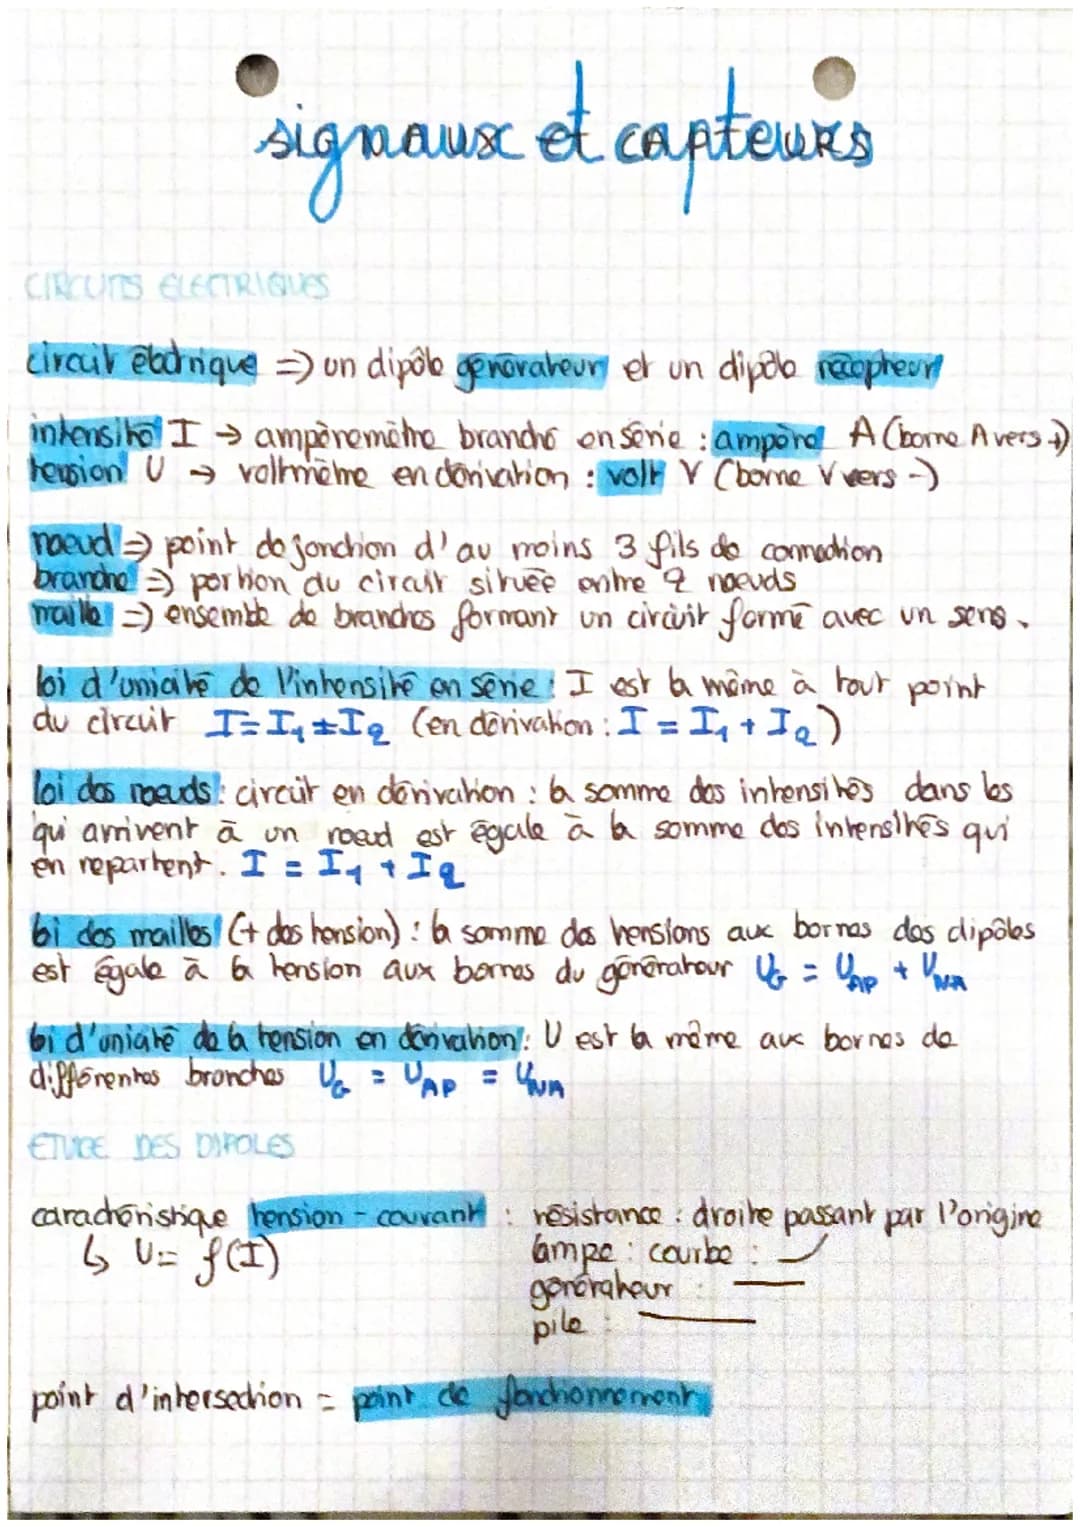 signaux et capteurs
CIRCUITS ELECTRIQUES
circuit électrique => un dipôle générateur et un dipôle récepteur
intensité I → ampèremètre branché en série : ampère A (borne A vers +)
tension U → voltmètre en dérivation : volt V (borne V vers -)
noeud => point de jonction d'au moins 3 fils de connection
branche => portion du circuit située entre 2 noeuds
maille => ensemble de branches formant un circuit formé avec un sens.
loi d'unicité de l'intensité en série : I est la même à tout point
du circuit I = I₁ = I₂ (en dérivation : I = I₁ + I₂)
loi des noeuds : circuit en dérivation : la somme des intensités dans les
qui arrivent à un noeud est égale à la somme des intensités qui
en repartent. I = I₁ + I₂
loi des mailles (+ des tension) : la somme des tensions aux bornes des dipôles
est égale à la tension aux bornes du générateur U_G = U_AP + U_NA
loi d'unicité de la tension en dérivation : U est la même aux bornes de
différentes branches U_G = U_AP = U_NA
ETUDE DES DIPOLES
caractéristique tension - courant : résistance : droite passant par l'origine
↳ U = f(I)
lampe : courbe :
générateur :
pile :
point d'intersection = point de fonctionnement